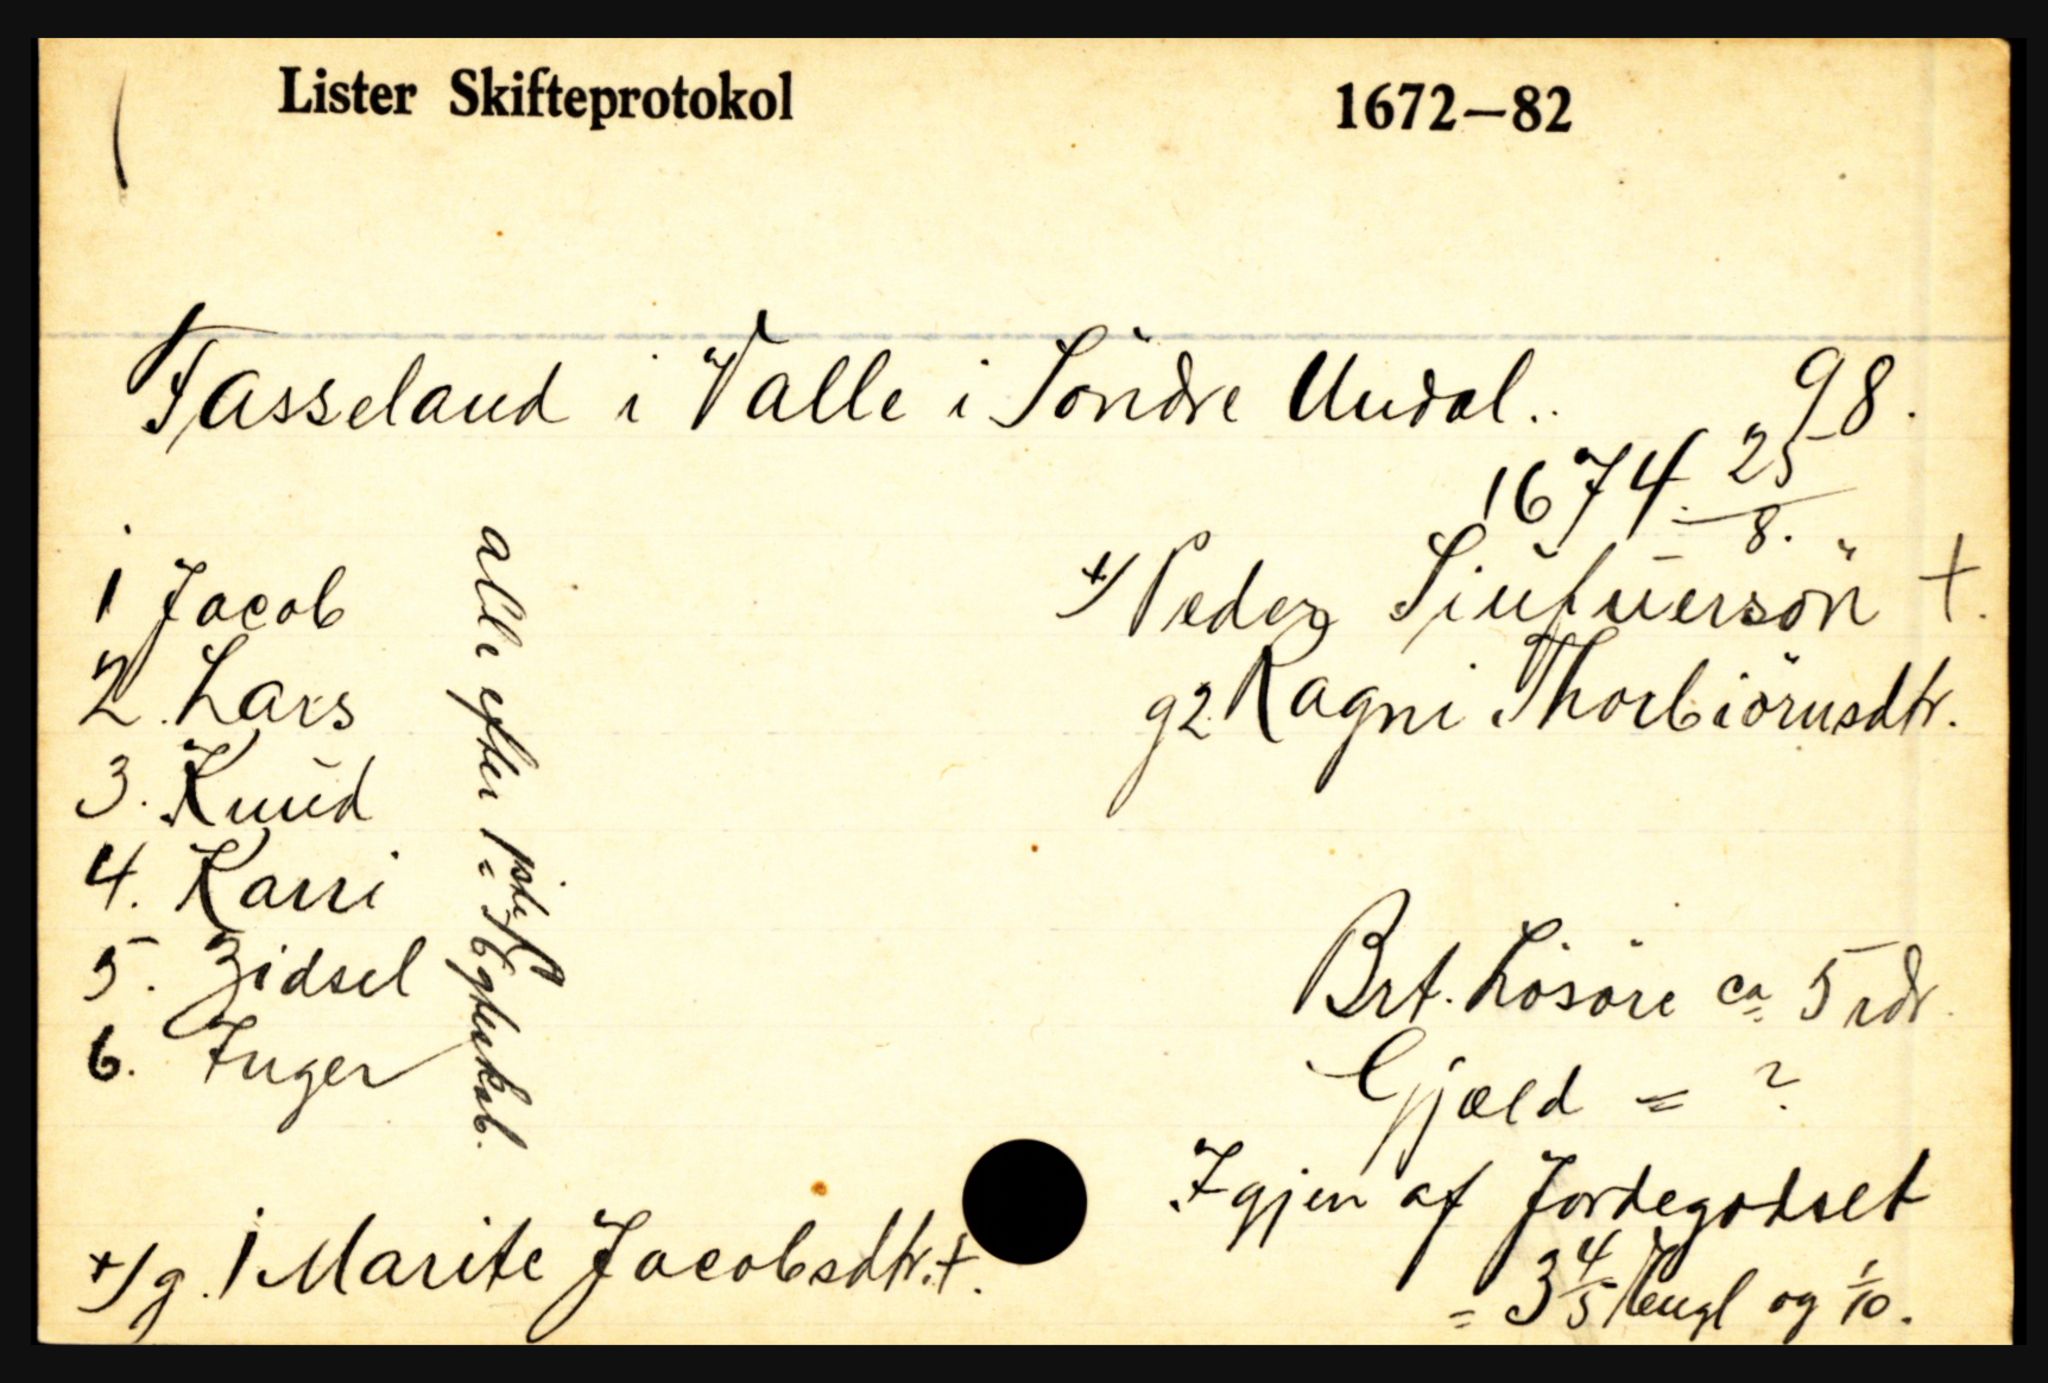 Lister Skifteprotokol 1672—82
Fasseland i Valle i Söndre Undal. 98.
1674. 25/8.
+/ Peder Siufuersön +.
g2. Ragni Thorbiörnsdtr.
1 Jacob
2. Lars
3. Knud
4. Karri
5. Zidsel
6. Inger
alle efter 1ste Egteskab.
Brt. Lösöre ca 5 rdr.
Gjæld = ?
Igjen af Jordegodset
= 3 4/5 Engl og 1/10.
+/ g. 1 Marite Jacobsdtr. +.